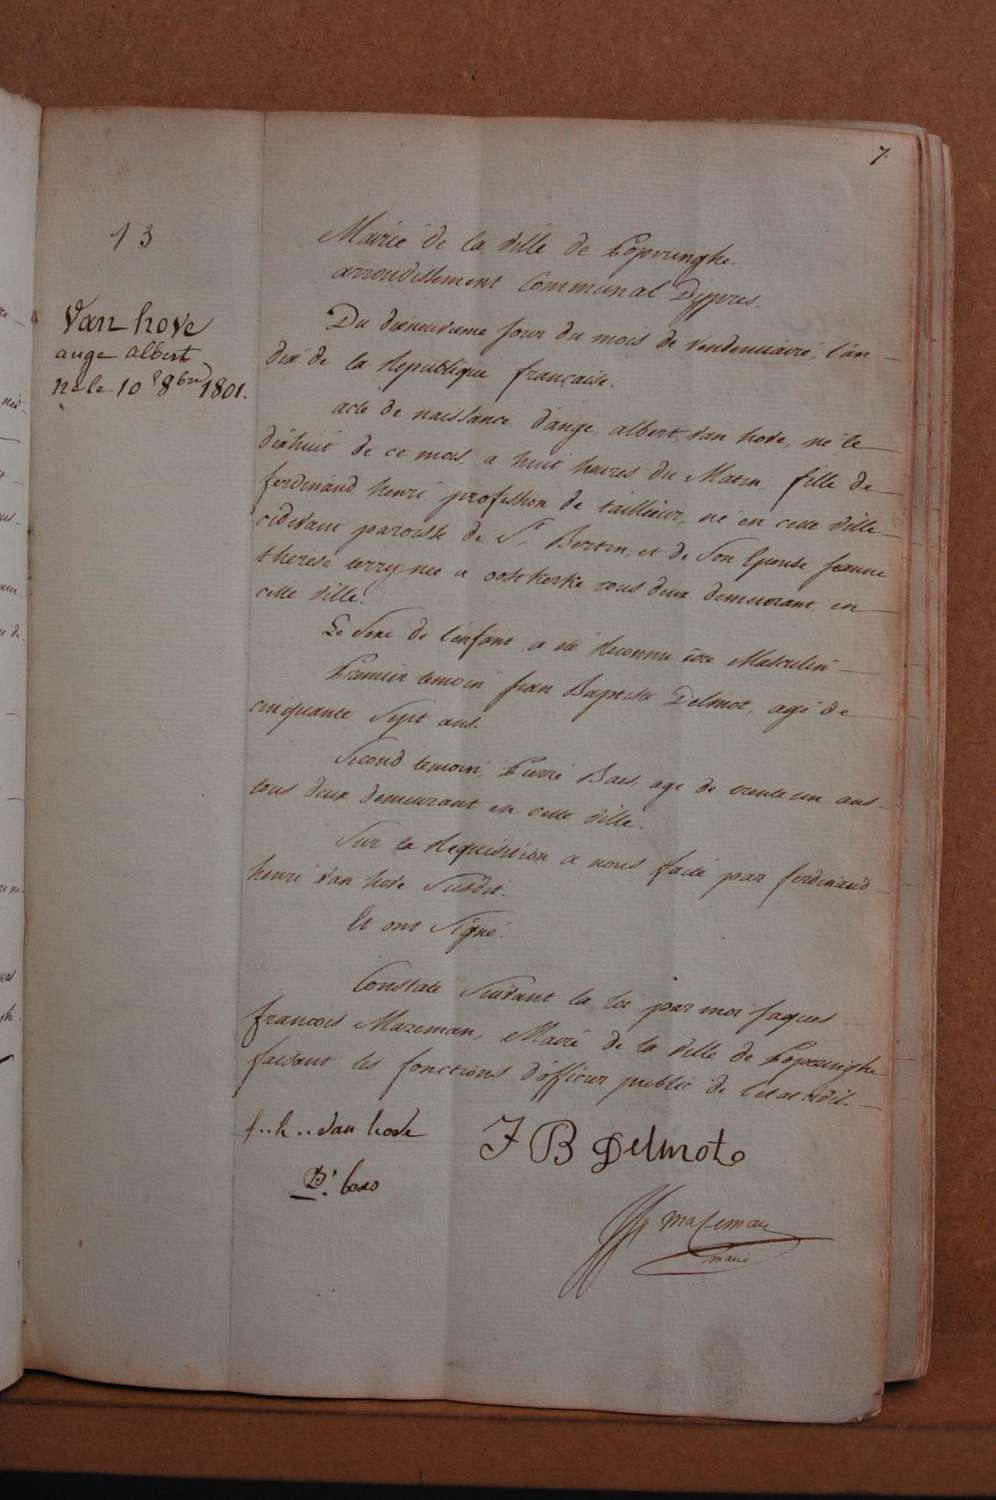 7.
13
Van hove
ange albert
né le 10 8bre 1801.
Mairie de la Ville de Poperinghe.
arrondissement Communal Dÿpres.
Du dixneuvieme Jour du mois de Vendemiaire, l'an
dix de la Republique française.
acte de naissance d'ange, albert, Van hove, né le
dixhuit de ce mois, a huit heures du Matin, fille de
ferdinand henri, profession de taillieur, né en cette ville
cidevant paroisse de St. Bertin, et de Son Epouse Jeanne
therese terry née a oostkerke tous deux demeurant en
cette Ville.
Le Sexe de l'enfant a été Reconnu être Masculin
Premier temoin Jean Baptiste Delmot, agé de
cinquante Sept ans.
Second temoin, Pierre Baes, agé de trente un ans
tous deux demeurant en cette Ville.
Sur la Requisition a nous faite par ferdinand
henri Van hove Susdit.
Et ont Signé.
Constaté Suivant la loi par moi Jaques
francois Mazeman, Maire de la Ville de Poperinghe
faisant les fonctions d'officier public de l'etat civil.
f..h.. van hove
J B Delmot
Pr. baes
mazeman
maire